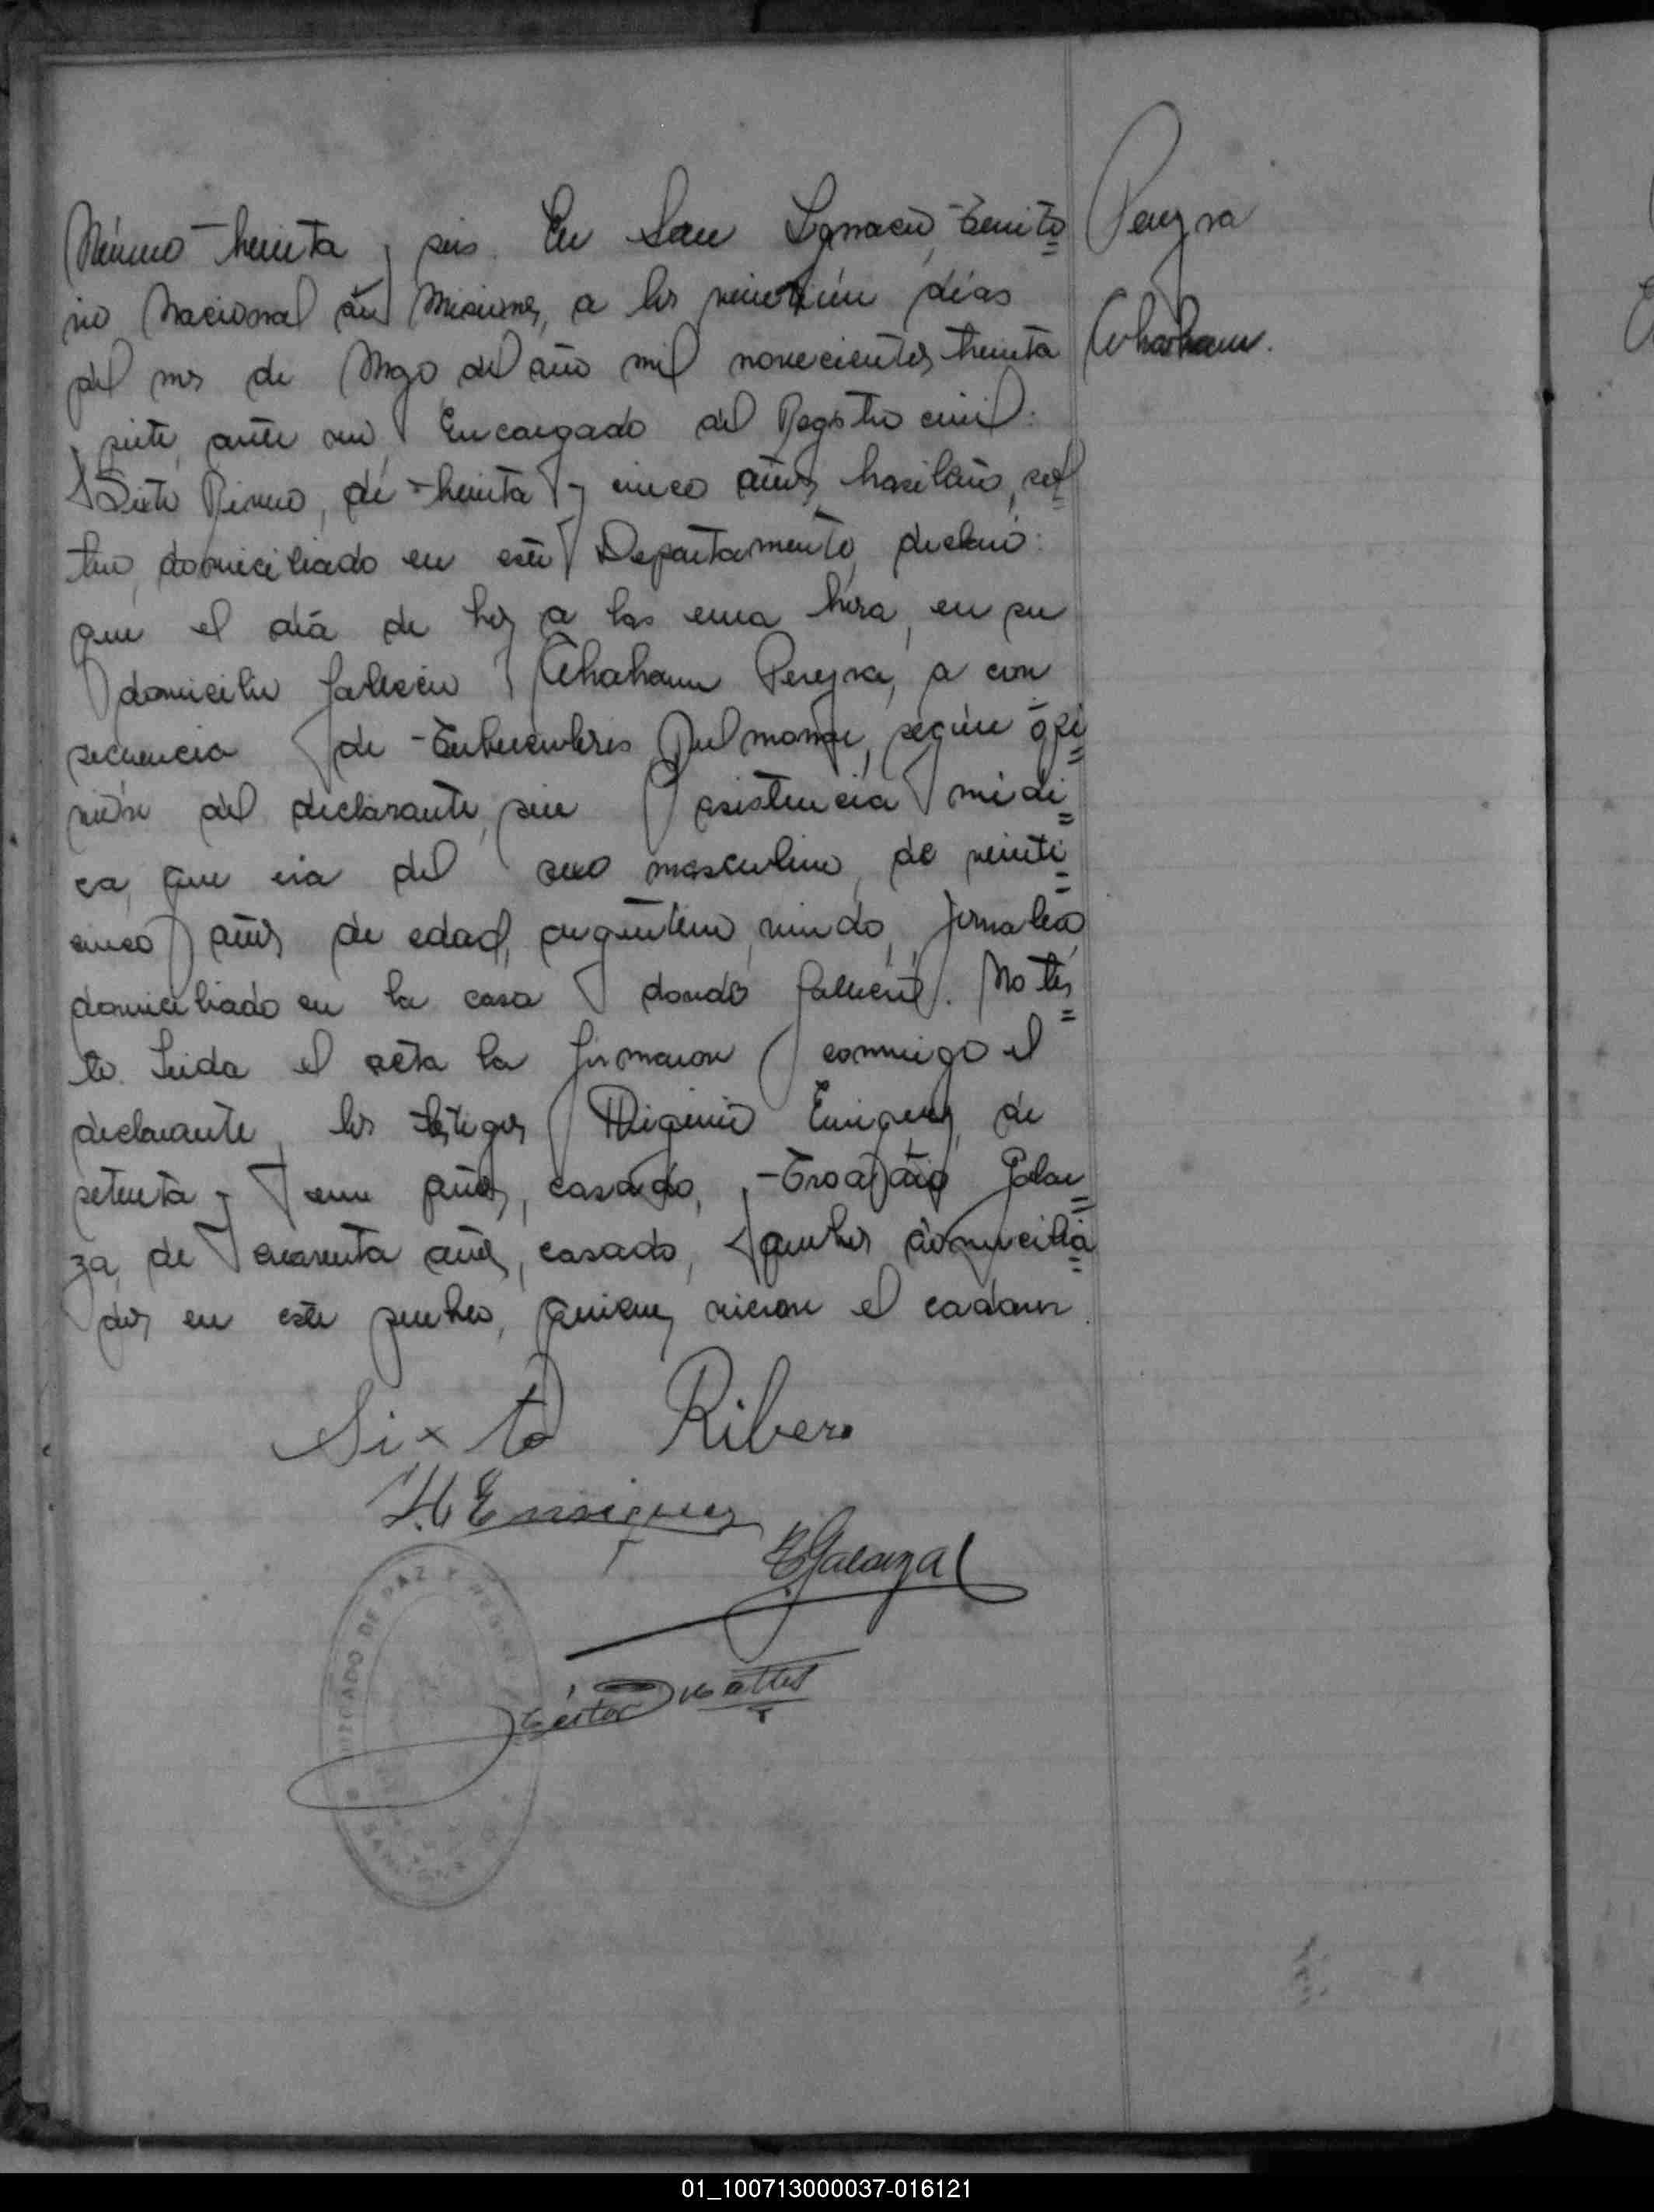 Pereyra
Abraham.
Número treinta y seis. En San Ignacio, Territo=
rio Nacional de Misiones, a los veintiún días
del mes de Mayo del año mil novecientos treinta
y siete, ante mí, Encargado del Registro civil:
Sixto Rivero, de treinta y cinco años, brasileño, sol=
tero, domiciliado en este Departamento, declaró:
que el día de hoy a las una hora, en su
domicilio falleció Abraham Pereyra, a con=
secuencia de Tuberculosis Pulmonar, según opi=
nión del declarante, sin asistencia médi=
ca, que era del sexo masculino, de veinti=
cinco años de edad, argentino, viudo, jornalero,
domiciliado en la casa donde falleció. No tes=
tó. Leida el acta la firmaron conmigo el
declarante, los testigos Higinio Enriquez, de
setenta y un años, casado, y Galar=
za, de cuarenta años, casado, ambos domicilia=
dos en este pueblo, quienes vieron el cadaver.
Sixto Ribero
H Enriquez
E Galarza
Héctor
JUZGADO DE PAZ Y